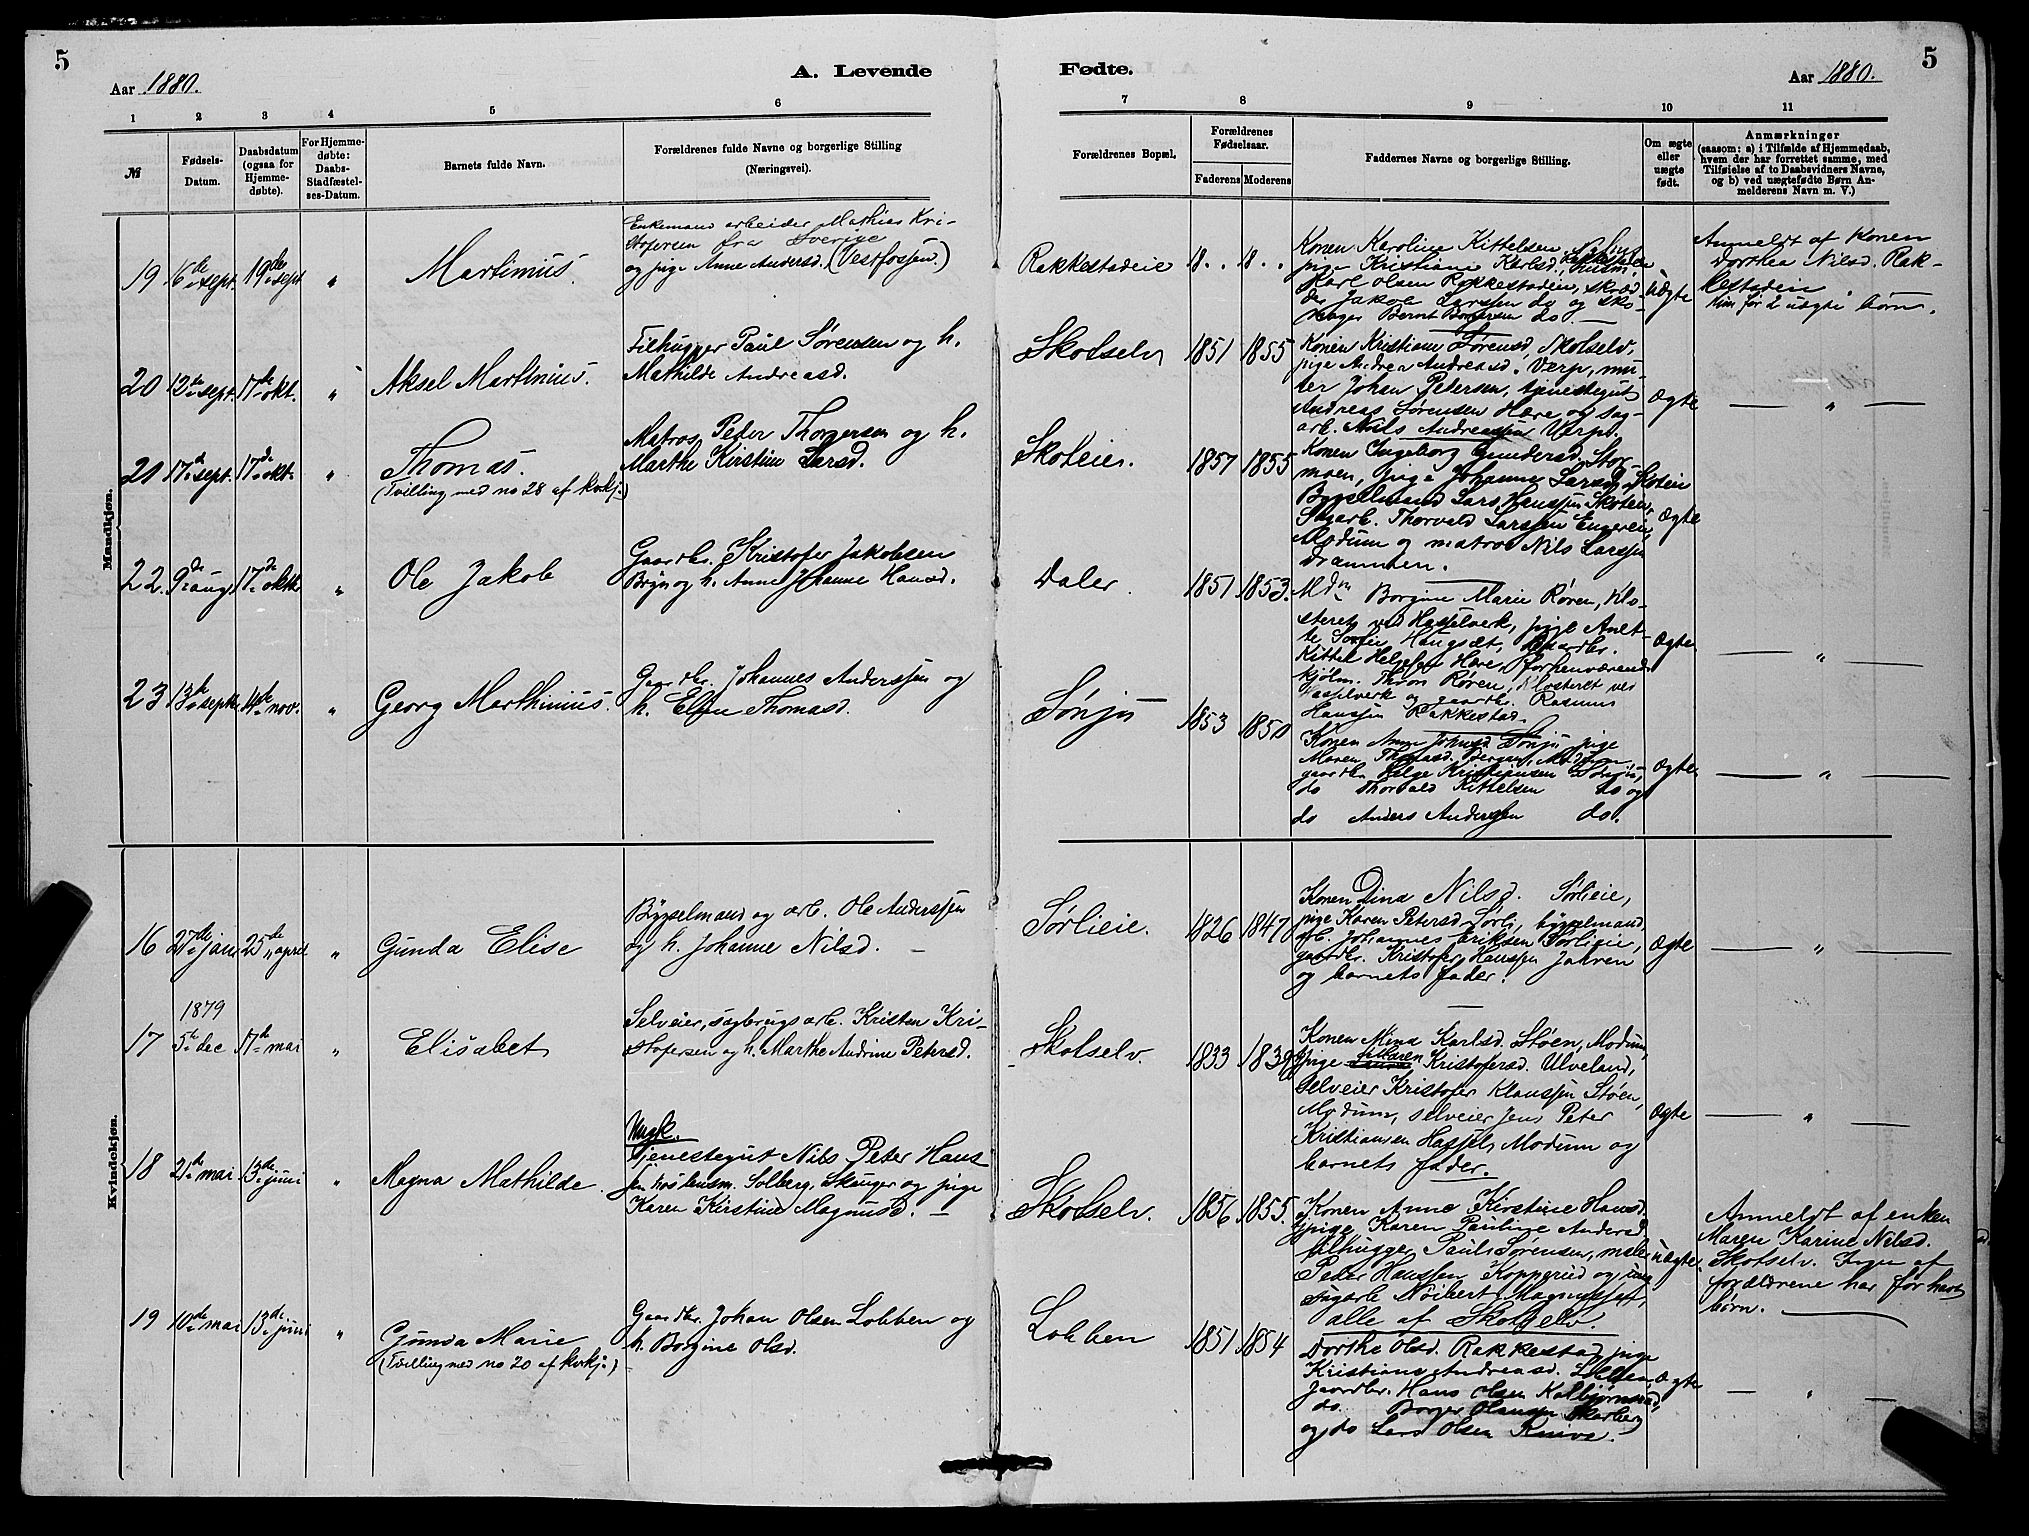 5
Aar 1880.
A. Levende
1 2 3 4 5 6
№
Fødsels-
Datum.
Daabsdatum
(ogsaa for
Hjemme-
døbte).
For Hjemme-
døbte:
Daabs-
Stadfæstel-
ses-Datum.
Barnets fulde Navn.
Forældrenes fulde Navne og borgerlige Stilling
(Næringsvei).
Mandkjøn.
Enkemand arbeider Mathias Kri-
stofersen fra Sverige
19 6te sept. 19de sept " Martinius. og pige Anne Andersd. (Vestfossen.)
Tilhugger Paul Sørensen og h.
20 12te sept. 17de okt. " Aksel Martinius. Mathilde Andreasd.
Matros Peder Thorgersen og h.
21 17de sept. 17de okt. " Thomas. Marthe Kirstine Larsd.
(Tvilling med no 28 af kvkj.)
Gaardbr. Kristofer Jakobsen
22. 9de aug. 17de oktbr " Ole Jakob Bryn og h. Anne Johanne Hansd.
Gaardbr. Johannes Anderssen og
23 13de septbr 14de nov. " Georg Marthinius. h. Elen Thomasd.
Kvindekjøn.
Bygselmand og arb. Ole Anderssen
16 27de jan. 25de april " Gunda Elise og h. Johanne Nilsd. —
1879
Selveier, sagbrugsarb. Kristen Kri-
17 5te dec 17de mai " Elisabet stofersen og h. Marthe Andrine Petersd.
Ungk.
Tjenestegut Nils Peter Hans-
18 21de mai 13de juni " Magna Mathilde. sen hos lensm. Solberg, Skauger og pige
Karen Kirstine Magnusd. —
19 10de mai 13de juni " Gunda Marie Gaardbr. Johan Olsen Lobben og
(Tvilling med no 20 af kvkj.) h. Borgine Olsd.
5
Fødte.
Aar 1880.
7 8 9 10 11
Forældrenes Bopæl.
Forældrenes
Fødselsaar.
Faderens Moderens
Faddernes Navne og borgerlige Stilling.
Om ægte
eller
uægte
født.
Anmærkninger
(saasom: a) i Tilfælde af Hjemmedaab,
hvem der har forrettet samme, med
Tilføielse af to Daabsvidners Navne,
og b) ved uægtefødte Børn An-
melderens Navn m. V.)
Rakkestadeie 18.. 18..
Konen Karoline Kittelsen
pige Kristiane Karlsd.
Karl Olsen Rakkestadeien, skræd-
der Jakob Larssen do og sko-
mager Bernt Borgersen do. —
Uægte
Anmeldt af konen
Dorthea Nilsd. Rak-
kestadeien
Hun før 2 uægte børn.
Skotselv 1851 1855
Konen Kristiane Sørensd, Skotselv,
pige Andrea Andreasd. Verp, mu-
rer Johan Petersen, tjenestegut
Andreas Sørensen Hære og sag-
arb. Nils Andreassen Verp.
Ægte — " —
Skoteier. 1857 1855
Konen Ingeborg Gundersd. Stor-
moen, pige Johanne Larsd Skoteien
Bygselmand Lars Hanssen Skoteien,
Sagarb. Thorvald Larssen Engeren,
Modum og matros Nils Larssen
Drammen.
Ægte
Daler 1851 1853.
Mdn Borgine Marie Røren, Klo-
steret ved Hasselverk, pige Anet-
te Sofie Haugsæt, Gaardbr.
Kittel Helgesen Hære, forhenværende
kjølm. Thron Røren, Klosteret ved
Hasselverk og gaardbr. Rasmus
Hanssen Rakkestad.
Ægte — " —
Sønju 1853 1850
Konen Anne Johnsd Sønju pige
Maren Thomasd. Bergan, Modum
gaardbr. Helge Kristiansen Sønju,
do Thorvald Kittelsen do og
do Anders Andersen do.
Ægte — " —
Sørlieie. 1826 1847
Konen Dina Nilsd. Sørlieie,
pige Karen Petersd. Sørli, bygselmand,
arb. Johannes Eriksen Sørlieie,
gaardbr. Kristofer Hanssen Jahren
og barnets fader.
Ægte — " —
Skotselv. 1833 1839
Konen Mina Karlsd. Støen, Modum,
pige Maren Kristofersd. Ulveland,
Selveier Kristofer Klaussen Støen,
Modum, selveier Jens Peter
Kristiansen Hassel, Modum og
barnets fader.
Ægte — " —
Skotselv. 1856 1855.
Konen Anne Kirstine Hansd.
pige Karen Pauline Andersd
tilhugger Paul Sørensen, maler
Peder Hanssen Kopperud og ung.
sagarb. Nøibert Magnussen,
alle af Skotselv.
uægte.
Anmeldt af enken
Maren Karine Nilsd.
Skotselv. Ingen af
forældrene har før havt
børn. —
Lobben 1851 1854
Dorthe Olsd. Rakkestad, pige
Kristiane Andreasd.
Gaardbr. Hans Olsen Kolbjørnsrud,
do. Borger Hansen
og do Lars Olsen
Ægte — " —